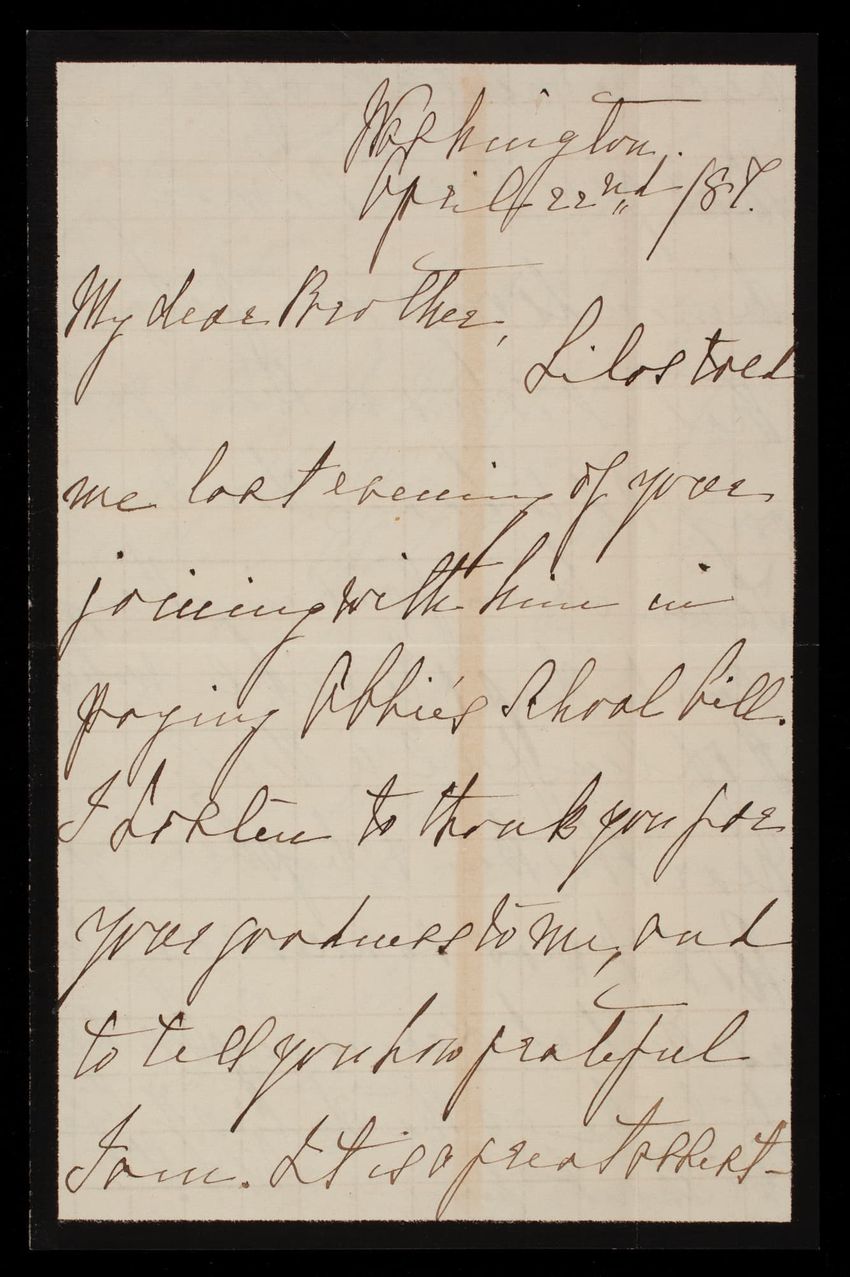 Washington.
April 22nd /87.
My dear Brother,
Silas told
me last evening of your
joining with him in
paying Abbie's School bill.
I hasten to thank you for
your goodness to me, and
to tell you how grateful
I am. It is a great assist-